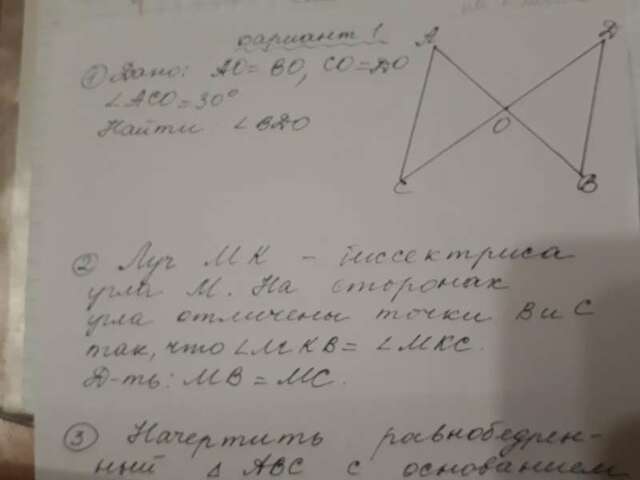 вариант 1
① Дано: AO = BO, CO = DO
∠ACO = 30°
Найти ∠BDO
A
D
O
C
B
② Луч MK - биссектриса
угла M. На сторонах
угла отмечены точки B и C
так, что ∠MKB = ∠MKC.
Д-ть: MB = MC.
③ Начертить равнобедрен-
ный △ ABC с основанием